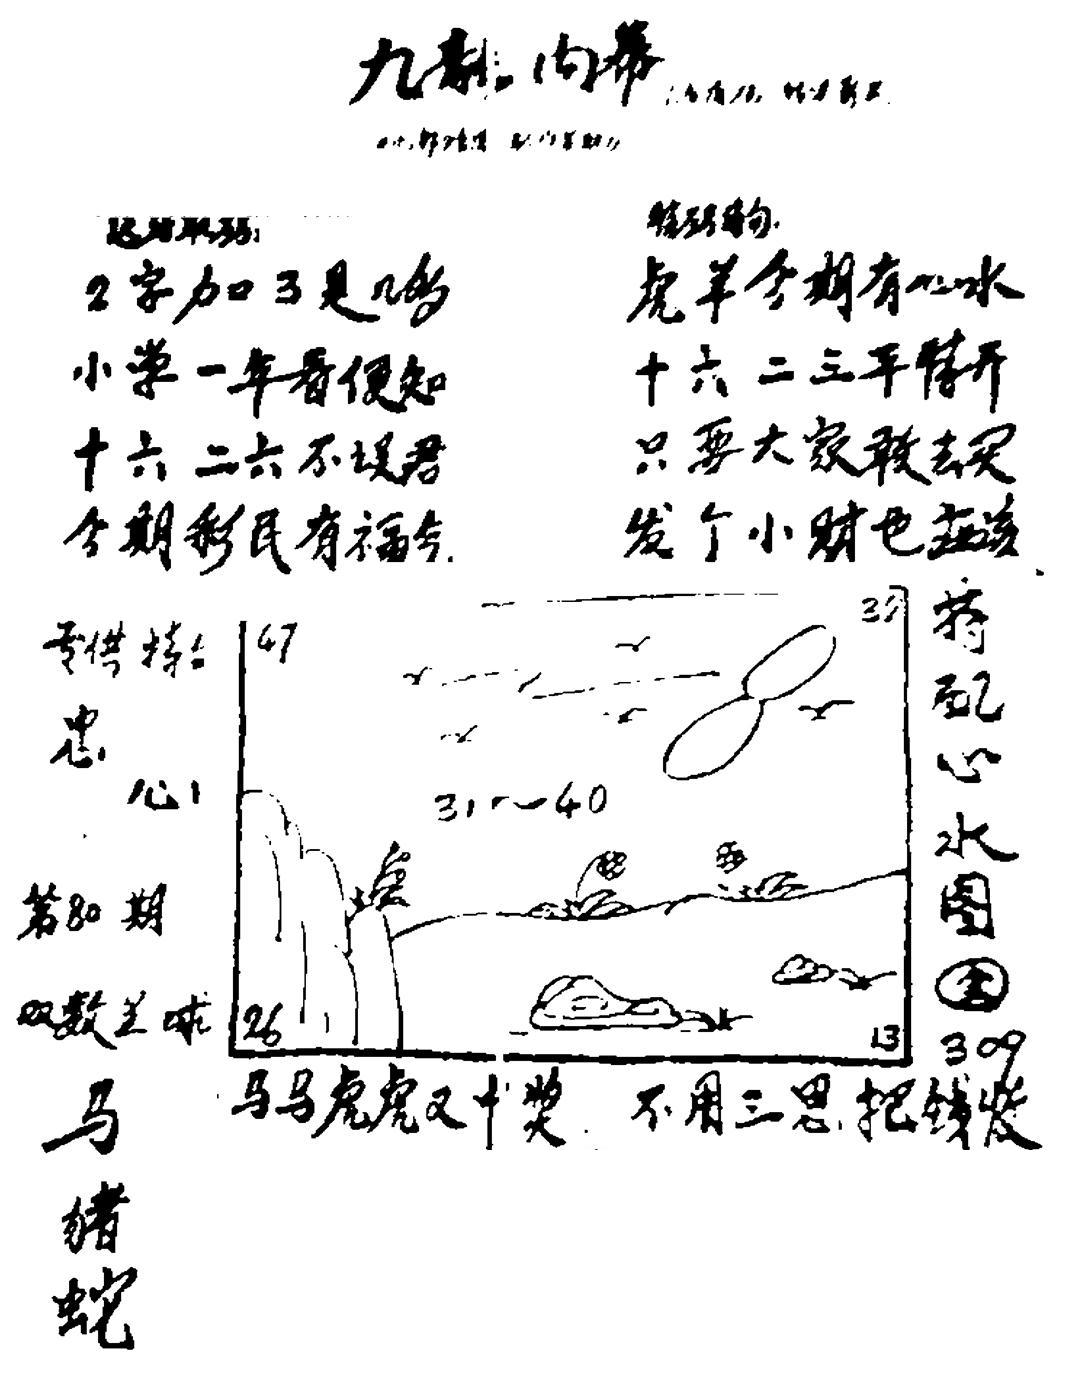 九龙内幕
2字加3是几多
小学一年看便知
十六二六不误君
今期彩民有福分.
虎羊今期有心水
十六二三平特开
只要大家敢去买
发个小财也应该
47
31~40
26
13
专供特
忠
心
第80期
双数
马
猪
蛇
特配心水图
309
马马虎虎又中奖
不用三思把钱发